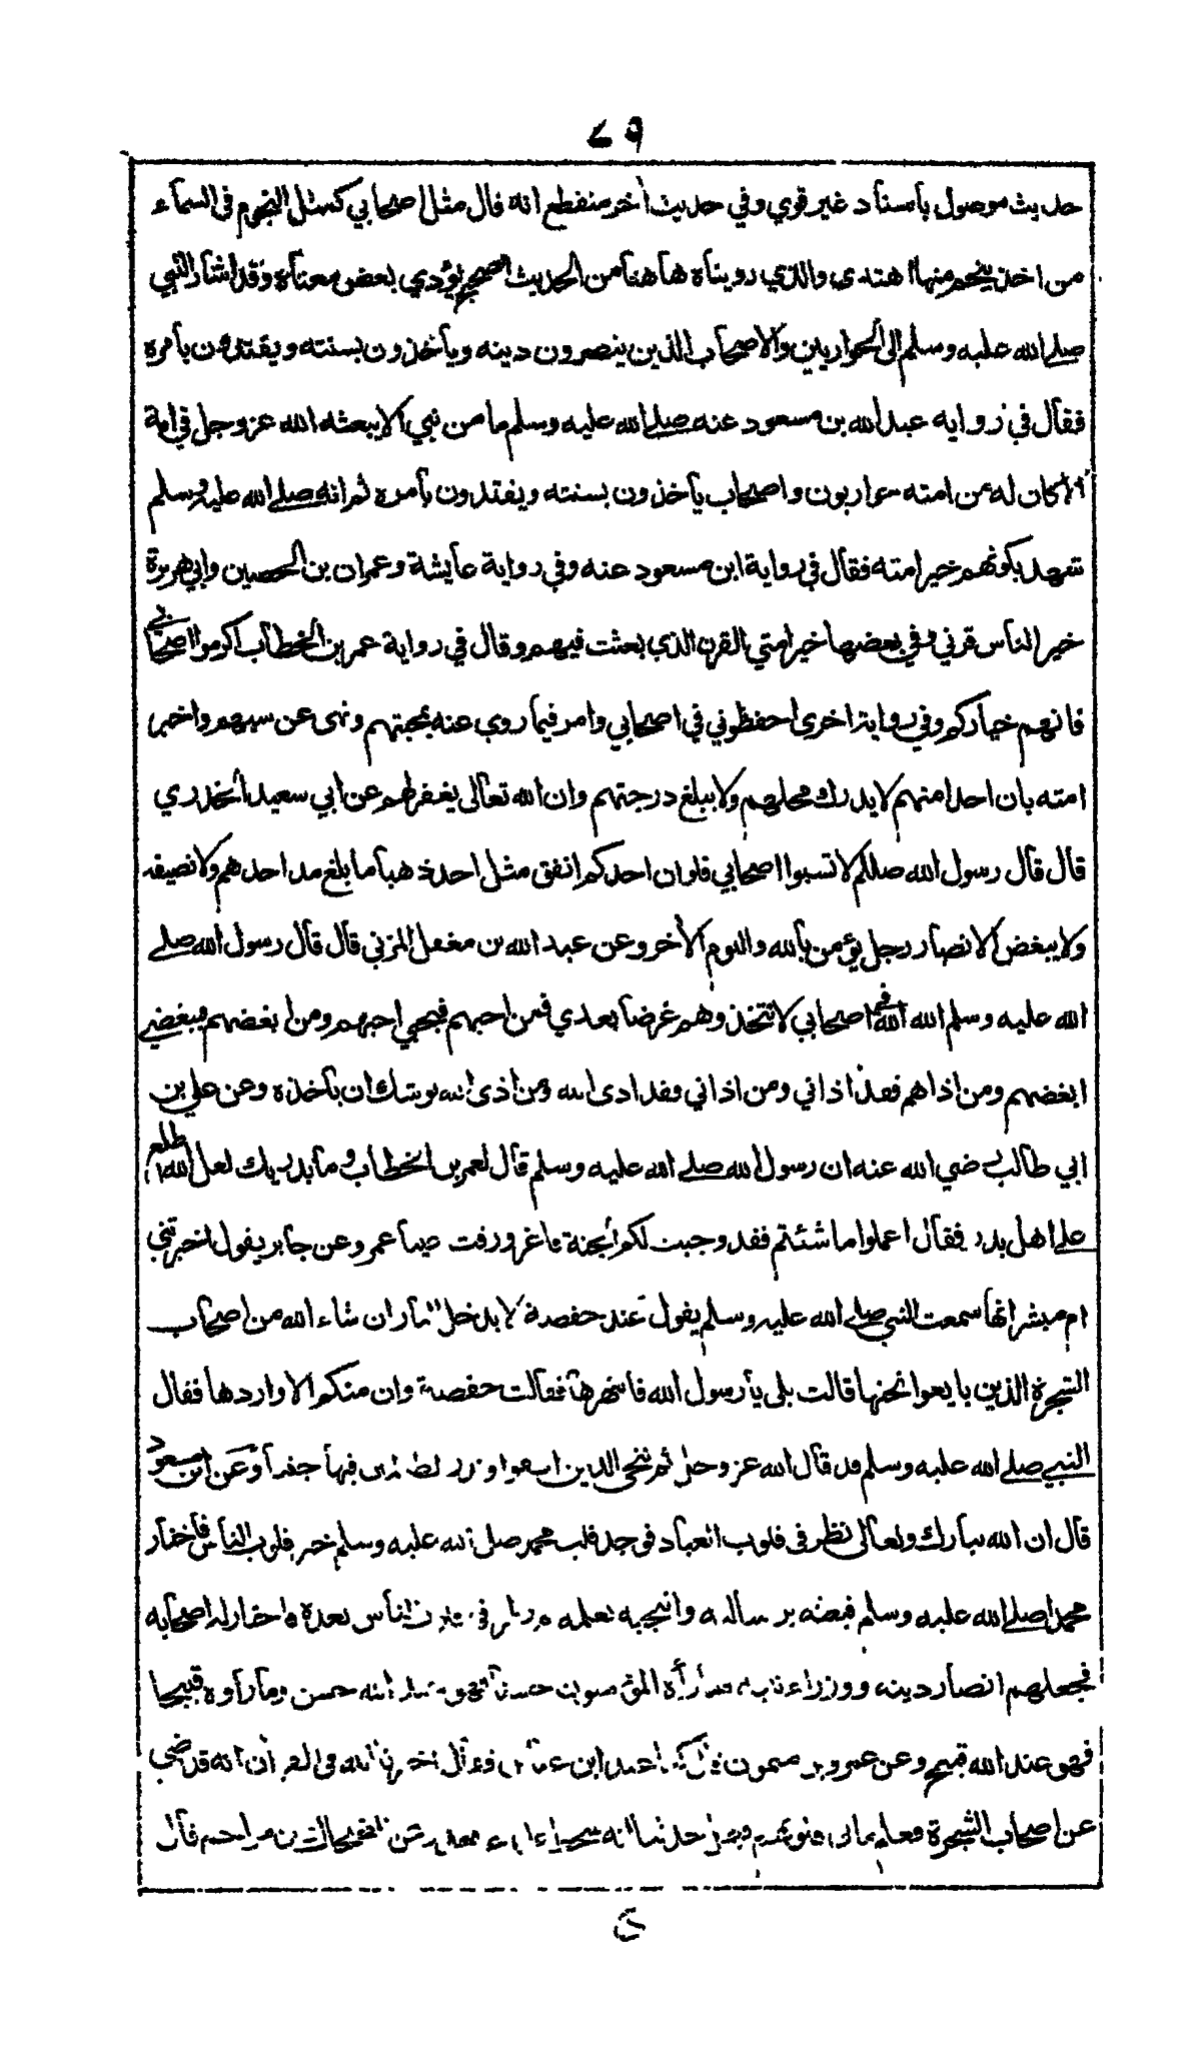 ٦٩
حديث موصول بأسناد غير قوي وفي حديث أخر منقطع انه قال مثل اصحابي كمثل النجوم في السماء
من اخذ بنجم منها اهتدى والذي رويناه هاهنا من الحديث الصحيح يؤدي بعض معناه وقد اشار النبي
صلى الله عليه وسلم الى الحواريين والاصحاب الذين ينصرون دينه ويأخذون بسنته ويقتدون بأمره
فقال في رواية عبد الله بن مسعود عنه صلى الله عليه وسلم ما من نبي الا يبعثه الله عز وجل في امة
الا كان له من امته حواريون واصحاب يأخذون بسنته ويقتدون بأمره ثم انه صلى الله عليه وسلم
شهد بكونهم خير امته فقال في رواية ابن مسعود عنه وفي رواية عايشة وعمران بن الحصين وابي هريرة
خير الناس قرني وفي بعضها خير امتي القرن الذي بعثت فيهم وقال في رواية عمر بن الخطاب اكرموا اصحابي
فانهم خياركم وفي رواية اخرى احفظوني في اصحابي وامر فيما روي عنه بمحبتهم ونهى عن سبهم واخبر
امته بان احدا منهم لا يدرك محلهم ولا يبلغ درجتهم وان الله تعالى يغفر لهم عن ابي سعيد الخدري
قال قال رسول الله صللم لا تسبوا اصحابي فلو ان احدكم انفق مثل احد ذهبا ما بلغ مد احدهم ولا نصيفه
ولا يبغض الانصار رجل يؤمن بالله واليوم الأخر وعن عبد الله بن مغفل المزني قال قال رسول الله صلى
الله عليه وسلم الله الله في اصحابي لا تتخذوهم غرضا بعدي فمن احبهم فبحبي احبهم ومن ابغضهم فببغضي
ابغضهم ومن اذاهم فقد اذاني ومن اذاني وفقد اذى الله ومن اذى الله يوشك ان يأخذه وعن علي بن
ابي طالب رضي الله عنه ان رسول الله صلى الله عليه وسلم قال لعمر بن الخطاب وما يدريك لعل الله اطلع
على اهل بدر فقال اعملوا ما شئتم فقد وجبت لكم الجنة فاغرورقت عينا عمر وعن جابر يقول اخبرتني
ام مبشر انها سمعت النبي صلى الله عليه وسلم يقول عند حفصة لا يدخل النار ان شاء الله من اصحاب
الشجرة الذين بايعوا تحتها قالت بلى يا رسول الله فانتهرها فقالت حفصة وان منكم الا واردها فقال
النبي صلى الله عليه وسلم قد قال الله عز وجل ثم ننجي الذين اتقوا ونذر الظالمين فيها جثيا وعن ابن مسعود
قال ان الله تبارك وتعالى نظر في قلوب العباد فوجد قلب محمد صلى الله عليه وسلم خير قلوب الناس فأختار
محمدا صلى الله عليه وسلم فبعثه برسالته وانتجبه بعلمه ثم نظر في قلوب الناس بعده فاختار له اصحابه
فجعلهم انصار دينه ووزراء نبيه فما رأه المؤمنون حسنا فهو عند الله حسن وما رأوه قبيحا
فهو عند الله قبيح وعن عمرو بن ميمون قال ابن عباس وقال اخبرنا الله في القران انه قد رضي
عن اصحاب الشجرة فعلم ما في قلوبهم حدثنا انه سخط عن الضحاك بن مزاحم قال